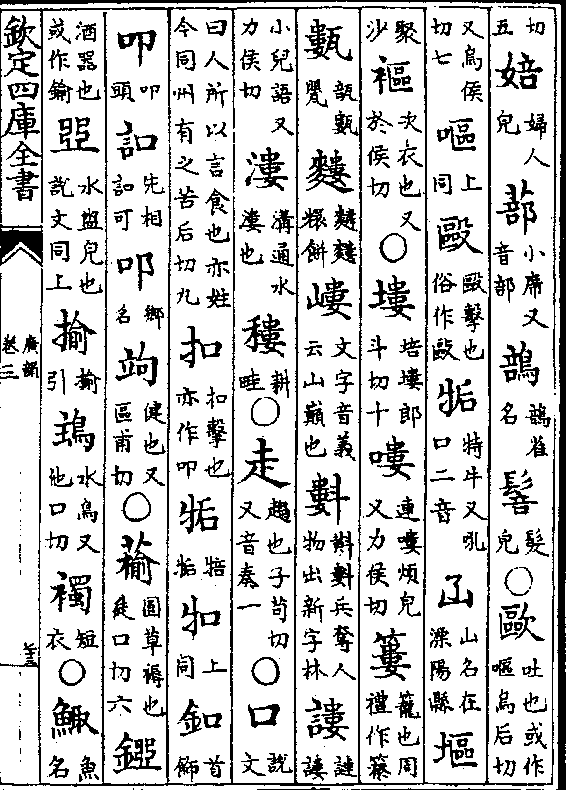 切五㛹婦人皃蔀小席又音部䳝䳝雀名䯽髮皃○歐吐也或作嘔烏后切
又烏侯切七嘔上同毆毆擊也俗作敺㸸特牛又吼口二音山名在溧陽縣塸
聚沙次衣也又於侯切○塿培塿郎斗切十嘍連嘍煩皃又力侯切簍籠也周禮作
甊瓿甊甖餅嶁文字音義云山巔也兵奪人物出新字林謱謰謱
小兒語又力侯切漊溝通水漊也耬耕畦○走趨也子苟切又音奏一○口說文
曰人所以言食也亦姓今同州有之苦后切九扣扣擊也亦作叩上同釦首飾
叩叩頭訆先相訆可鄉名竘健也又區甫切○蘛圓草褥也徒口切六鋀
酒器也或作鍮水盥皃也說文同上揄揄引水鳥又他口切襡短衣○鯫魚名
欽定四庫全書
廣韻
卷三